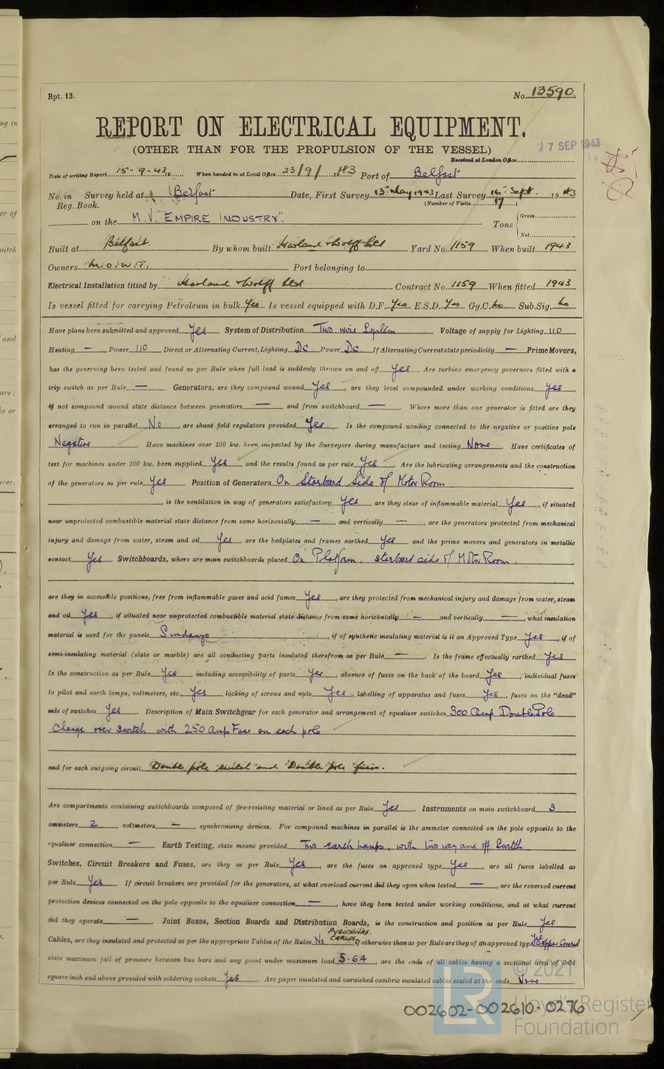 Rpt. 13. No. 13590
REPORT ON ELECTRICAL EQUIPMENT.
(OTHER THAN FOR THE PROPULSION OF THE VESSEL)
17 SEP 1943
Received at London Office
Date of writing Report 15-9-43 When handed in at Local Office 23/9/1943 Port of Belfast
No. in Survey held at Belfast Date, First Survey 13 May 1943 Last Survey 16 Sept. 1943
Reg. Book. (Number of Visits 17)
on the M.V. "EMPIRE INDUSTRY". Tons { Gross Net
Built at Belfast. By whom built Harland & Wolff Ltd Yard No. 1159 When built 1943
Owners M.O.W.T. Port belonging to
Electrical Installation fitted by Harland & Wolff Ltd Contract No. 1159 When fitted 1943
Is vessel fitted for carrying Petroleum in bulk Yes Is vessel equipped with D.F. Yes E.S.D. Yes Gy.C. No Sub.Sig. No
Have plans been submitted and approved Yes System of Distribution Two wire System Voltage of supply for Lighting 110
Heating — Power 110 Direct or Alternating Current, Lighting DC Power DC. If Alternating Current state periodicity — Prime Movers,
has the governing been tested and found as per Rule when full load is suddenly thrown on and off Yes Are turbine emergency governors fitted with a
trip switch as per Rule — Generators, are they compound wound Yes, are they level compounded under working conditions Yes,
if not compound wound state distance between generators — and from switchboard — Where more than one generator is fitted are they
arranged to run in parallel No, are shunt field regulators provided Yes. Is the compound winding connected to the negative or positive pole
Negative Have machines over 100 kw. been inspected by the Surveyors during manufacture and testing None Have certificates of
test for machines under 100 kw. been supplied Yes and the results found as per rule Yes Are the lubricating arrangements and the construction
of the generators as per rule Yes Position of Generators On Starboard Side of Motor Room
, is the ventilation in way of generators satisfactory Yes are they clear of inflammable material Yes, if situated
near unprotected combustible material state distance from same horizontally — and vertically — , are the generators protected from mechanical
injury and damage from water, steam and oil Yes, are the bedplates and frames earthed Yes and the prime movers and generators in metallic
contact Yes Switchboards, where are main switchboards placed On Platform, starboard side of Motor Room.
are they in accessible positions, free from inflammable gases and acid fumes Yes, are they protected from mechanical injury and damage from water, steam
and oil Yes, if situated near unprotected combustible material state distance from same horizontally — and vertically —, what insulation
material is used for the panels Sindanyo, if of synthetic insulating material is it an Approved Type Yes, if of
semi-insulating material (slate or marble) are all conducting parts insulated therefrom as per Rule — Is the frame effectually earthed Yes
Is the construction as per Rule Yes including accessibility of parts Yes, absence of fuses on the back of the board Yes, individual fuses
to pilot and earth lamps, voltmeters, etc., Yes, locking of screws and nuts Yes, labelling of apparatus and fuses Yes, fuses on the "dead"
side of switches Yes Description of Main Switchgear for each generator and arrangement of equaliser switches 300 Amp Double Pole
Change over switch with 250 Amp Fuse on each pole
and for each outgoing circuit Double pole switch and Double pole fuses.
Are compartments containing switchboards composed of fire-resisting material or lined as per Rule Yes Instruments on main switchboard 3
ammeters 2 voltmeters — synchronising devices. For compound machines in parallel is the ammeter connected on the pole opposite to the
equaliser connection — Earth Testing, state means provided Two earth lamps, with two way and off Switch
Switches, Circuit Breakers and Fuses, are they as per Rule Yes, are the fuses an approved type Yes, are all fuses labelled as
per Rule Yes If circuit breakers are provided for the generators, at what overload current did they open when tested —, are the reversed current
protection devices connected on the pole opposite to the equaliser connection —, have they been tested under working conditions, and at what current
did they operate — Joint Boxes, Section Boards and Distribution Boards, is the construction and position as per Rule Yes
Cables, are they insulated and protected as per the appropriate Tables of the Rules No PYROTENAX CABLES. If otherwise than as per Rule are they of an approved type Yes Copper Covered
state maximum fall of pressure between bus bars and any point under maximum load 5.64, are the ends of all cables having a sectional area of 0.04
square inch and above provided with soldering sockets Yes Are paper insulated and varnished cambric insulated cables sealed at the ends None
© 2021
Lloyd's Register
Foundation
002602-002610-0276